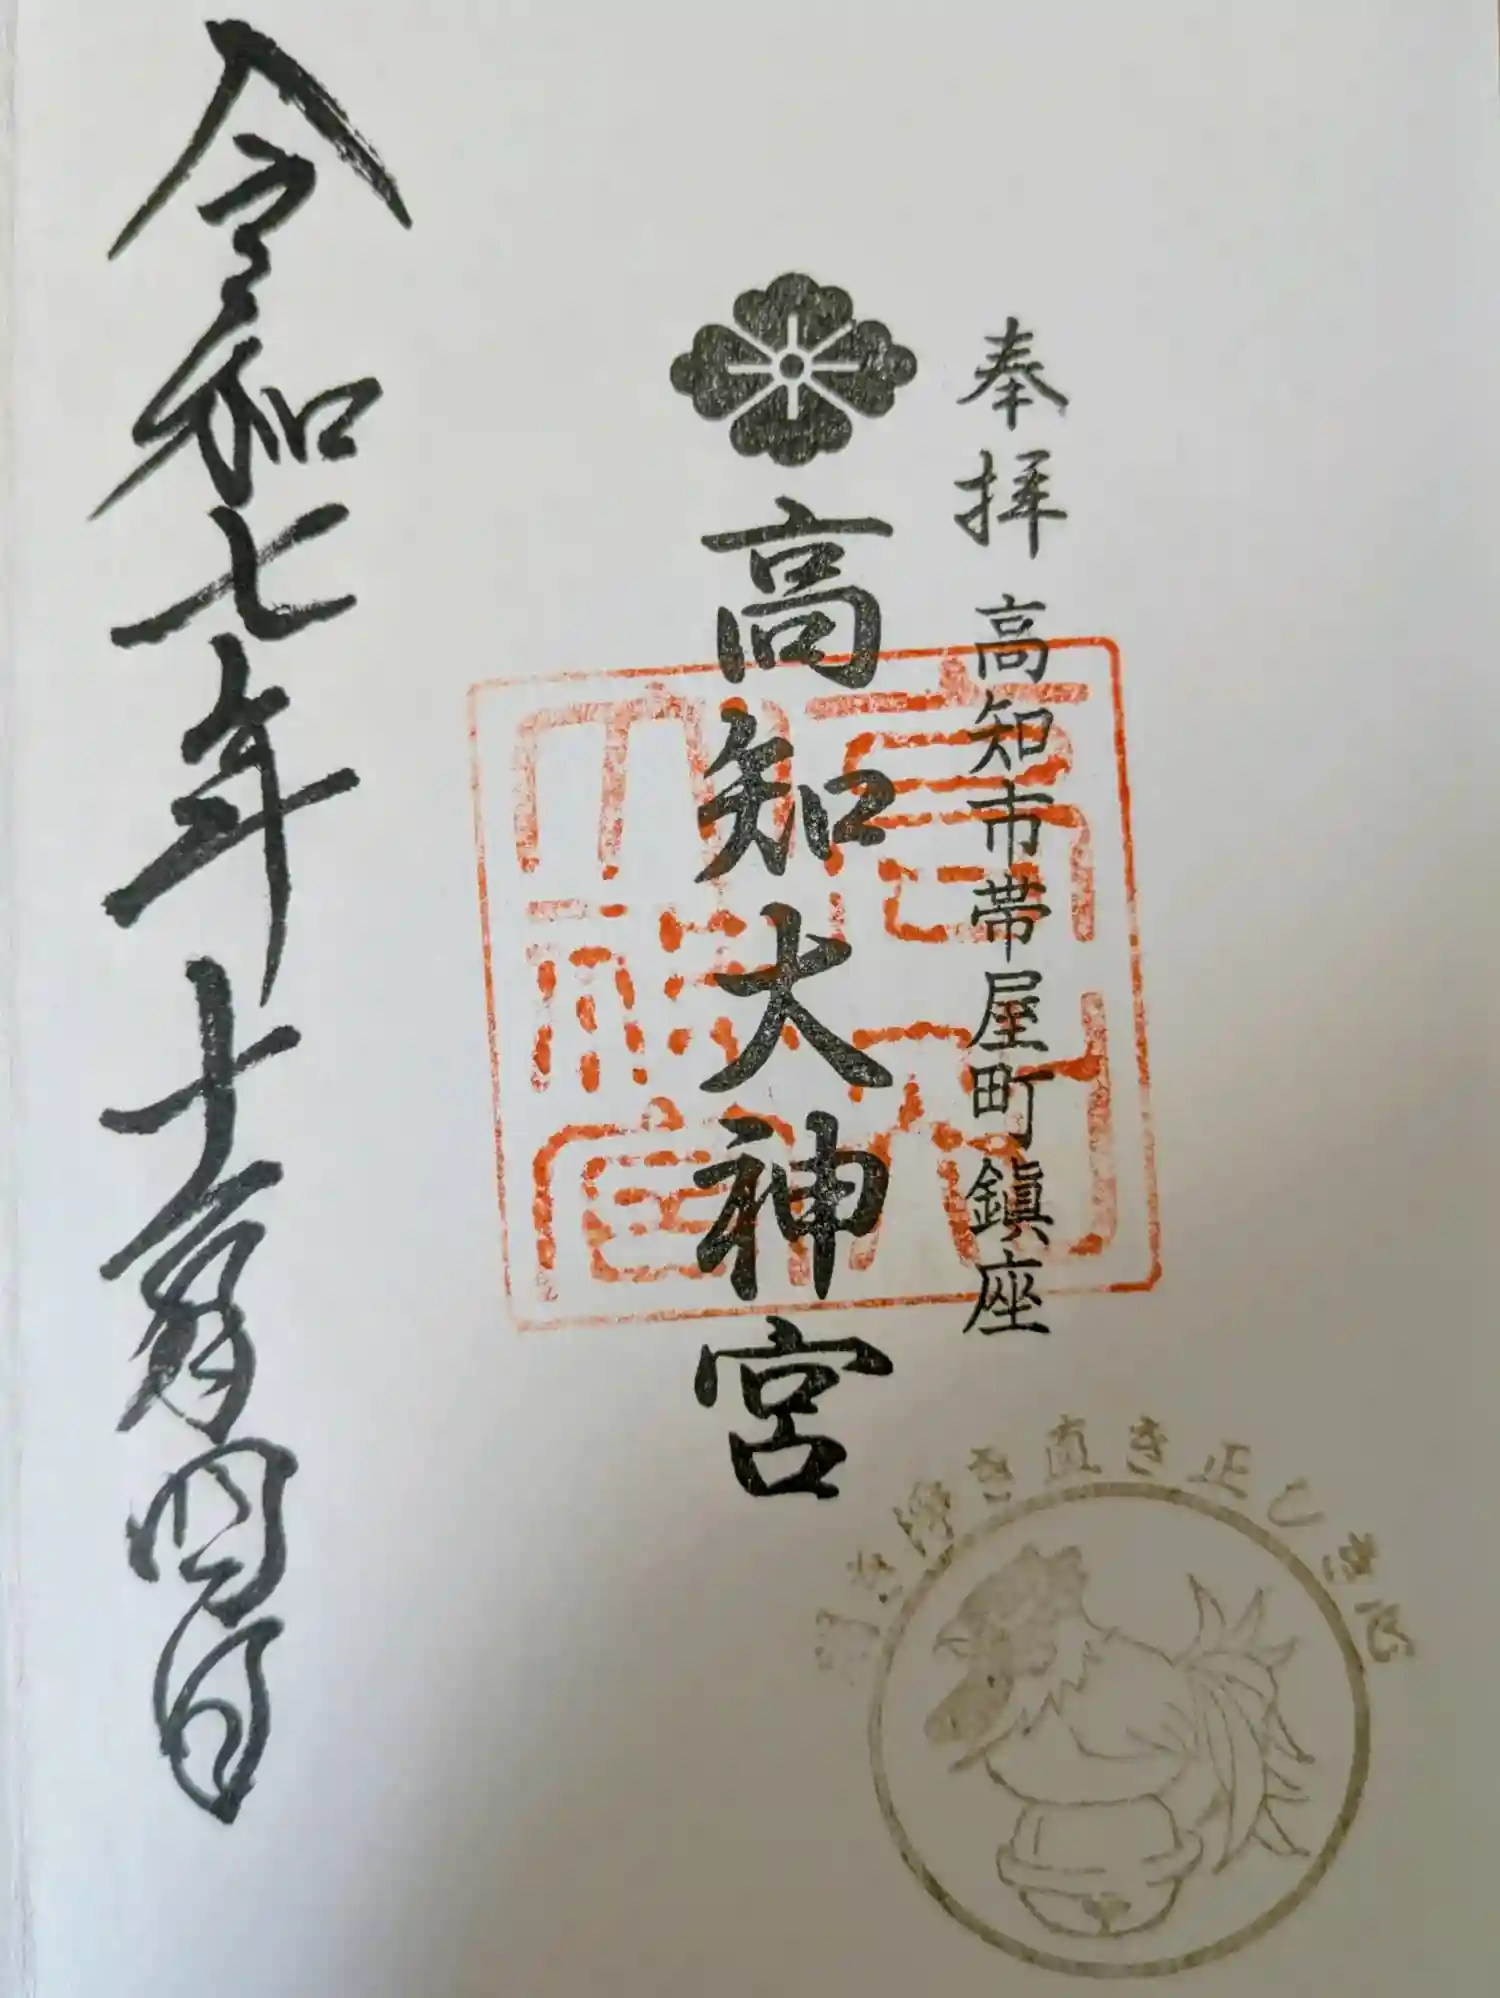 奉拝 高知市帯屋町鎮座
高知大神宮
令和七年十一月四日
明き浄き直き正しき心